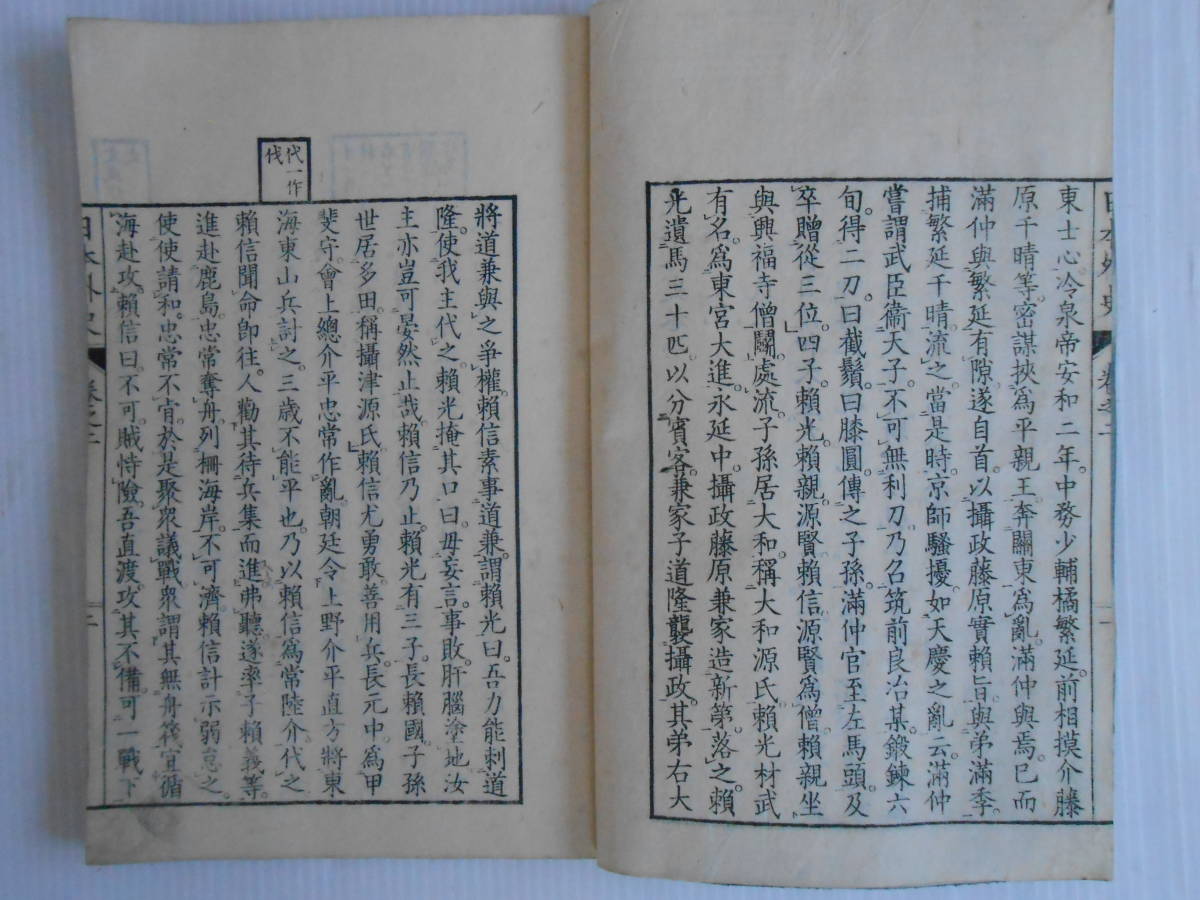 日本外史 卷之二
東士心冷泉帝安和二年中務少輔橘繁延前相摸介藤
原千晴等密謀挾爲平親王奔關東爲亂滿仲與焉已而
滿仲與繁延有隙遂自首以攝政藤原實賴旨與弟滿季
捕繁延千晴流之當是時京師騷擾如天慶之亂云滿仲
嘗謂武臣衞天子不可無利刀乃名筑前良冶某鍛鍊六
旬得二刀曰截鬚曰膝圓傳之子孫滿仲官至左馬頭及
卒贈從三位四子賴光賴親源賢賴信源賢爲僧賴親坐
與興福寺僧鬪處流子孫居大和稱大和源氏賴光材武
有名爲東宮大進永延中攝政藤原兼家造新第落之賴
光遺馬三十匹以分賓客兼家子道隆襲攝政其弟右大
將道兼與之爭權賴信素事道兼謂賴光曰吾力能刺道
隆使我主代之賴光掩其口曰毋妄言事敗肝腦塗地汝
主亦豈可晏然止哉賴信乃止賴光有三子長賴國子孫
世居多田稱攝津源氏賴信尤勇敢善用兵長元中爲甲
斐守會上總介平忠常作亂朝廷令上野介平直方將東
海東山兵討之三歲不能平也乃以賴信爲常陸介代之
賴信聞命卽往人勸其待兵集而進弗聽遂率子賴義等
進赴鹿島忠常奪舟列柵海岸不可濟賴信計示弱怠之
使使請和忠常不肯於是聚衆議戰衆謂其無舟筏宜循
海赴攻賴信曰不可賊恃險吾直渡攻其不備可一戰下
代一作
伐
日本外史 卷之二 三